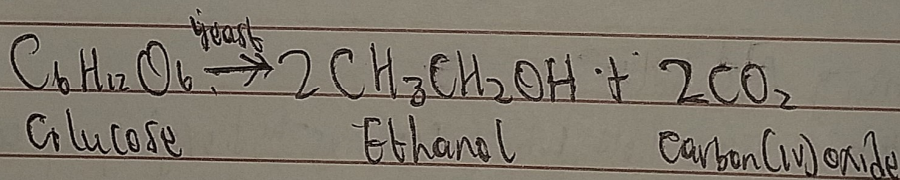 yeast
C₆H₁₂O₆ → 2CH₃CH₂OH + 2CO₂
Glucose Ethanol Carbon(iv) oxide